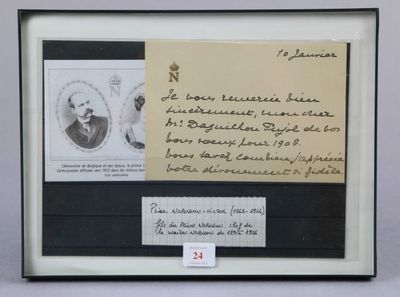 N
Clémentine de Belgique et son époux, le prince
Carte-postale diffusée vers 1912 dans les milieux
10 Janvier
N
Je vous remercie bien
sincèrement, mon cher
Mr. Daguilhon Pujol de vos
bons vœux pour 1908.
Vous savez combien j'apprécie
votre dévouement si fidèle.
Prince NAPOLÉON-VICTOR (1862-1926)
fils du Prince NAPOLÉON chef de
la maison NAPOLÉON de 1891 à 1926
24